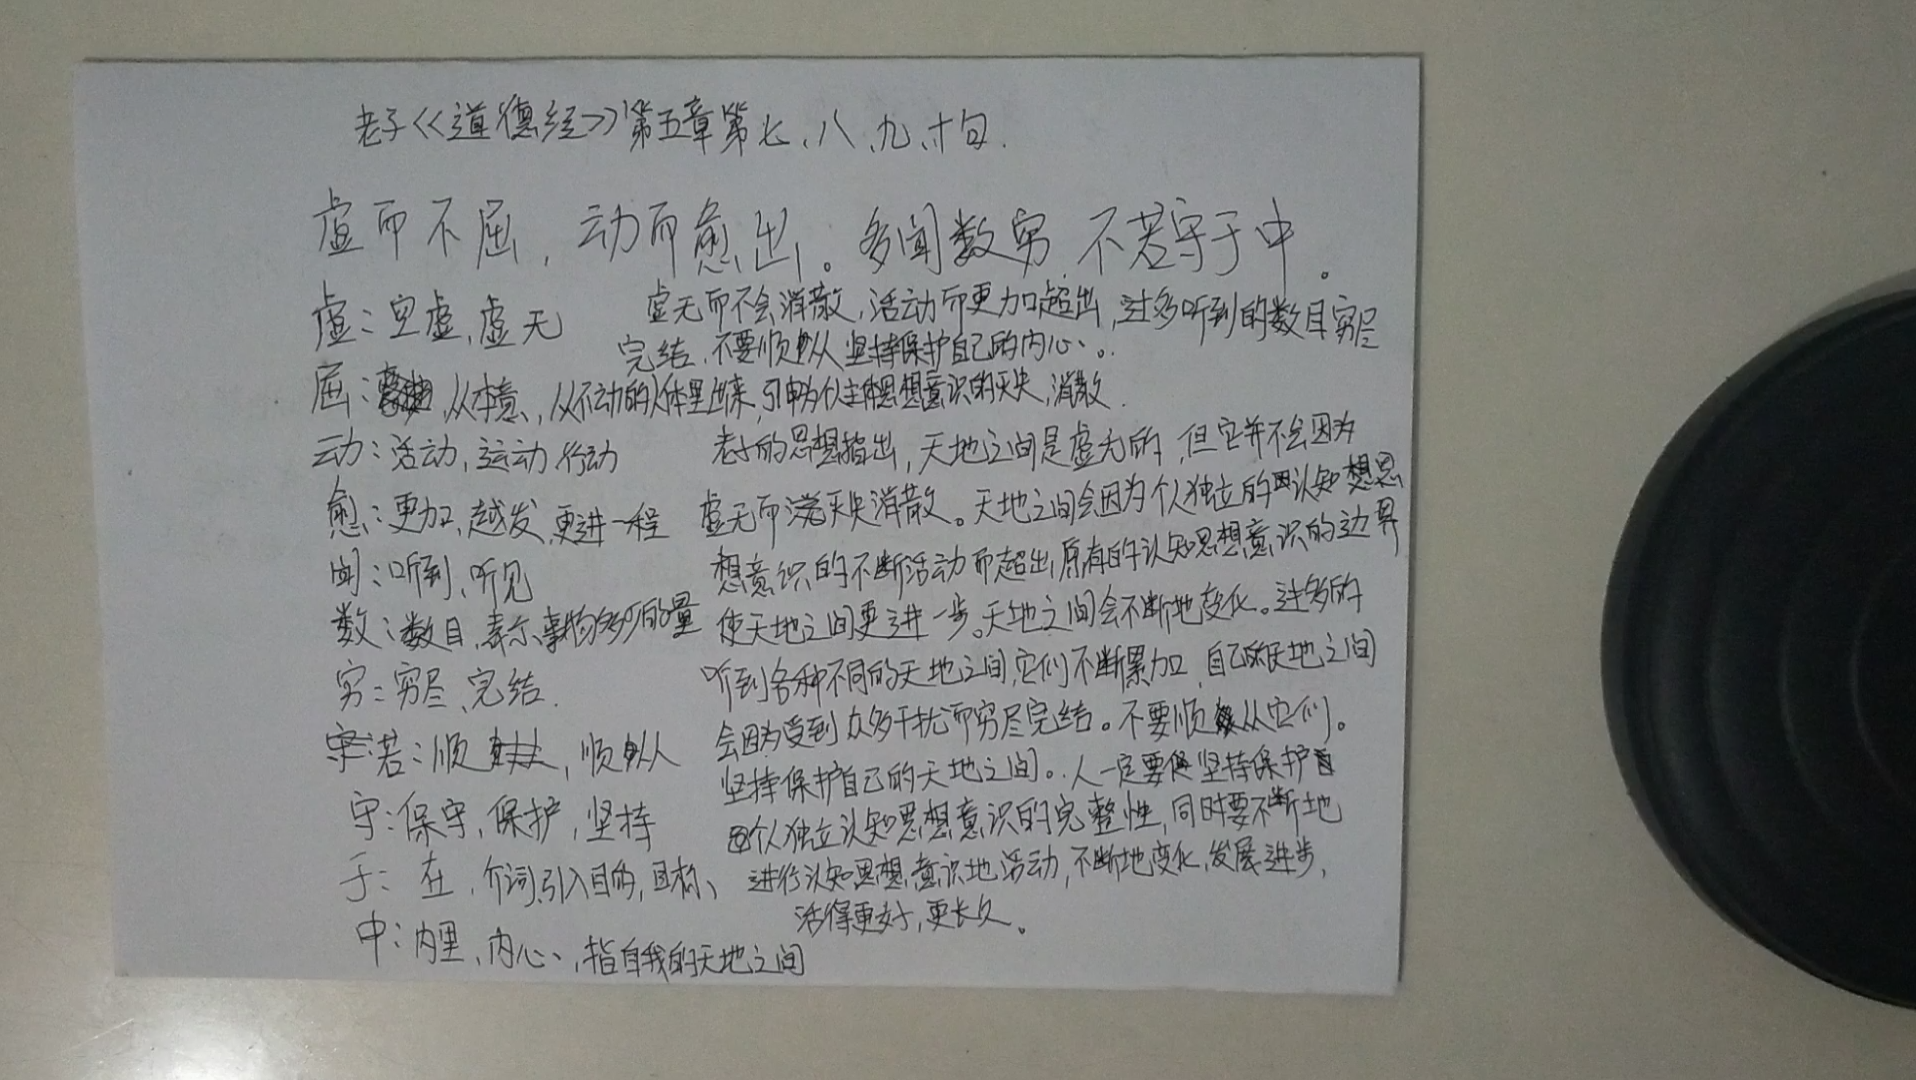 老子《道德经》第五章第七、八、九、十句.
虚而不屈，动而愈出。多闻数穷，不若守于中。
虚：空虚，虚无
虚无而不会消散，活动而更加超出，过多听到的数目穷尽
完结，不要顺从坚持保护自己的内心。
屈：从本意，从不动的人体里出来，引申为人主体思想意识的灭失，消散.
动：活动，运动，行动
愈：更加，越发，更进一程
闻：听到，听见
数：数目，表示事物多少的量
穷：穷尽、完结.
若：顺，顺从
守：保守，保护，坚持
于：在，介词，引入目的，目标、
中：内里，内心，指自我的天地之间
老子的思想指出，天地之间是虚无的，但它并不会因为
虚无而灭失消散。天地之间会因为个人独立的认知想思
想意识的不断活动而超出原有的认知思想意识的边界
使天地之间更进一步。天地之间会不断地变化。过多的
听到各种不同的天地之间，它们不断累加，自己的天地之间
会因为受到众多干扰而穷尽完结。不要顺从它们。
坚持保护自己的天地之间。人一定要坚持保护
个人独立认知思想意识的完整性，同时要不断地
进行认知思想意识地活动，不断地变化，发展进步，
活得更好，更长久。